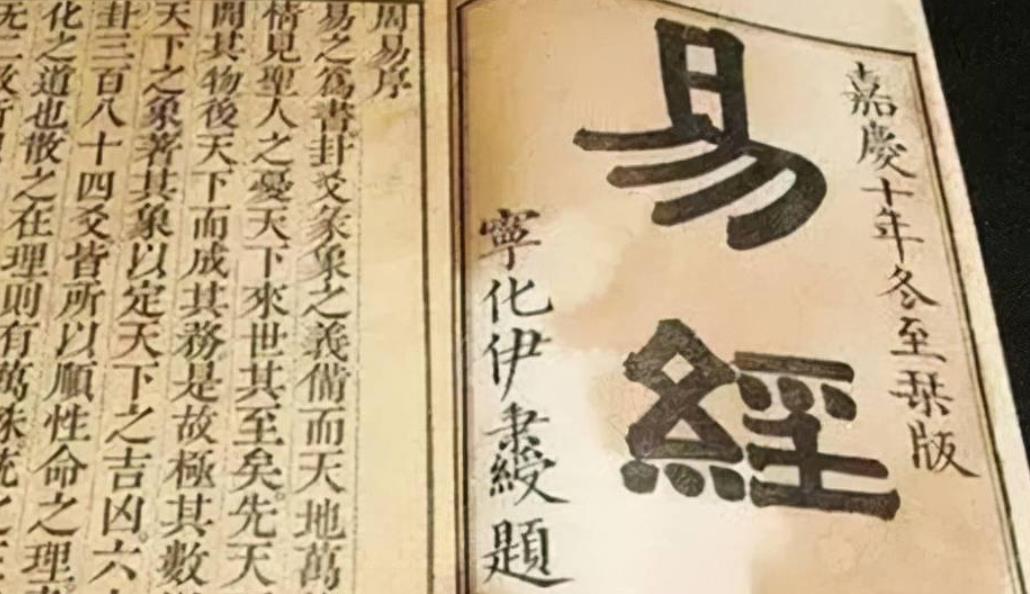 嘉慶十年冬至栞版
易經
寧化伊秉綬題
周易序
易之爲書卦爻彖象之義備而天地萬
情見聖人之憂天下來世其至矣。先天
開其物後天下而成其務是故極其數
天下之象著其象以定天下之吉凶。六
卦三百八十四爻皆所以順性命之理。
化之道也散之在理則有萬殊統之
无二致